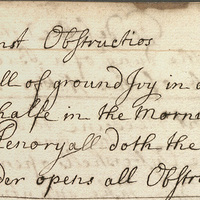 nst Obstructios
ll of ground Ivy in a
halfe in the Morni
Penoryall doth the
der opens all Obstr